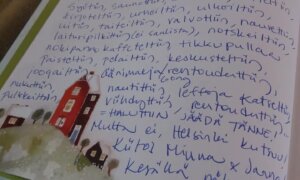 Syötiin, saunottiin,
kirjoiteltiin, uitiin, ulkoiltiin,
taiteiltiin, valvottiin, naurettiin,
laituripilkittiin (ei saalista), notskeiltiin,
nokipannukaffeteltiin, tikkupullaa
paistettiin, pelattiin, keskusteltiin,
joogattiin, äänimaljarentouduttiin,
nukuttiin, nautittiin, leffoja katseltiin,
pulkkailtiin, viihdyttiin, rentouduttiin
= HALUTTIIN JÄÄDÄ TÄNNE!
Mutta ei, Helsinki kutsuu,
Kiitos Minna x Janne
Kesällä